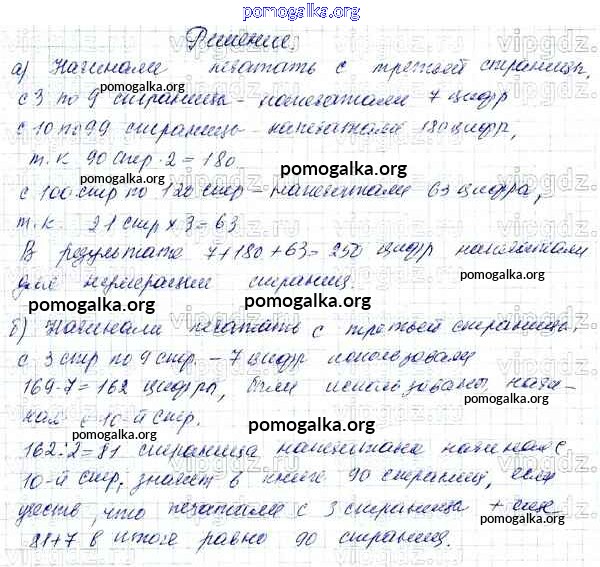 pomogalka.org
Решение.
а) Начинали печатать с третьей страницы,
с 3 по 9 страницы - напечатали 7 цифр
pomogalka.org
с 10 по 99 страницы - напечатали 180 цифр,
т.к 90 стр · 2 = 180
pomogalka.org
pomogalka.org
с 100 стр по 120 стр - напечатали 63 цифра,
т.к. 21 стр х 3 = 63
pomogalka.org
В результате 7+180+63=250 цифр напечатали
для нумерации страниц.
pomogalka.org
pomogalka.org
pomogalka.org
б) Начинали печатать с третьей страницы.
с 3 стр по 9 стр. - 7 цифр использовали
pomogalka.org
169-7=162 цифра, были использованы начи-
ная с 10-й стр.
pomogalka.org
pomogalka.org
162:2=81 страница напечатана начиная с
10-й стр, значит в книге 90 страниц, если
pomogalka.org
учесть, что печатали с 3 страницы + еще
pomogalka.org
81+7 в итоге равно 90 страниц.
pomogalka.org